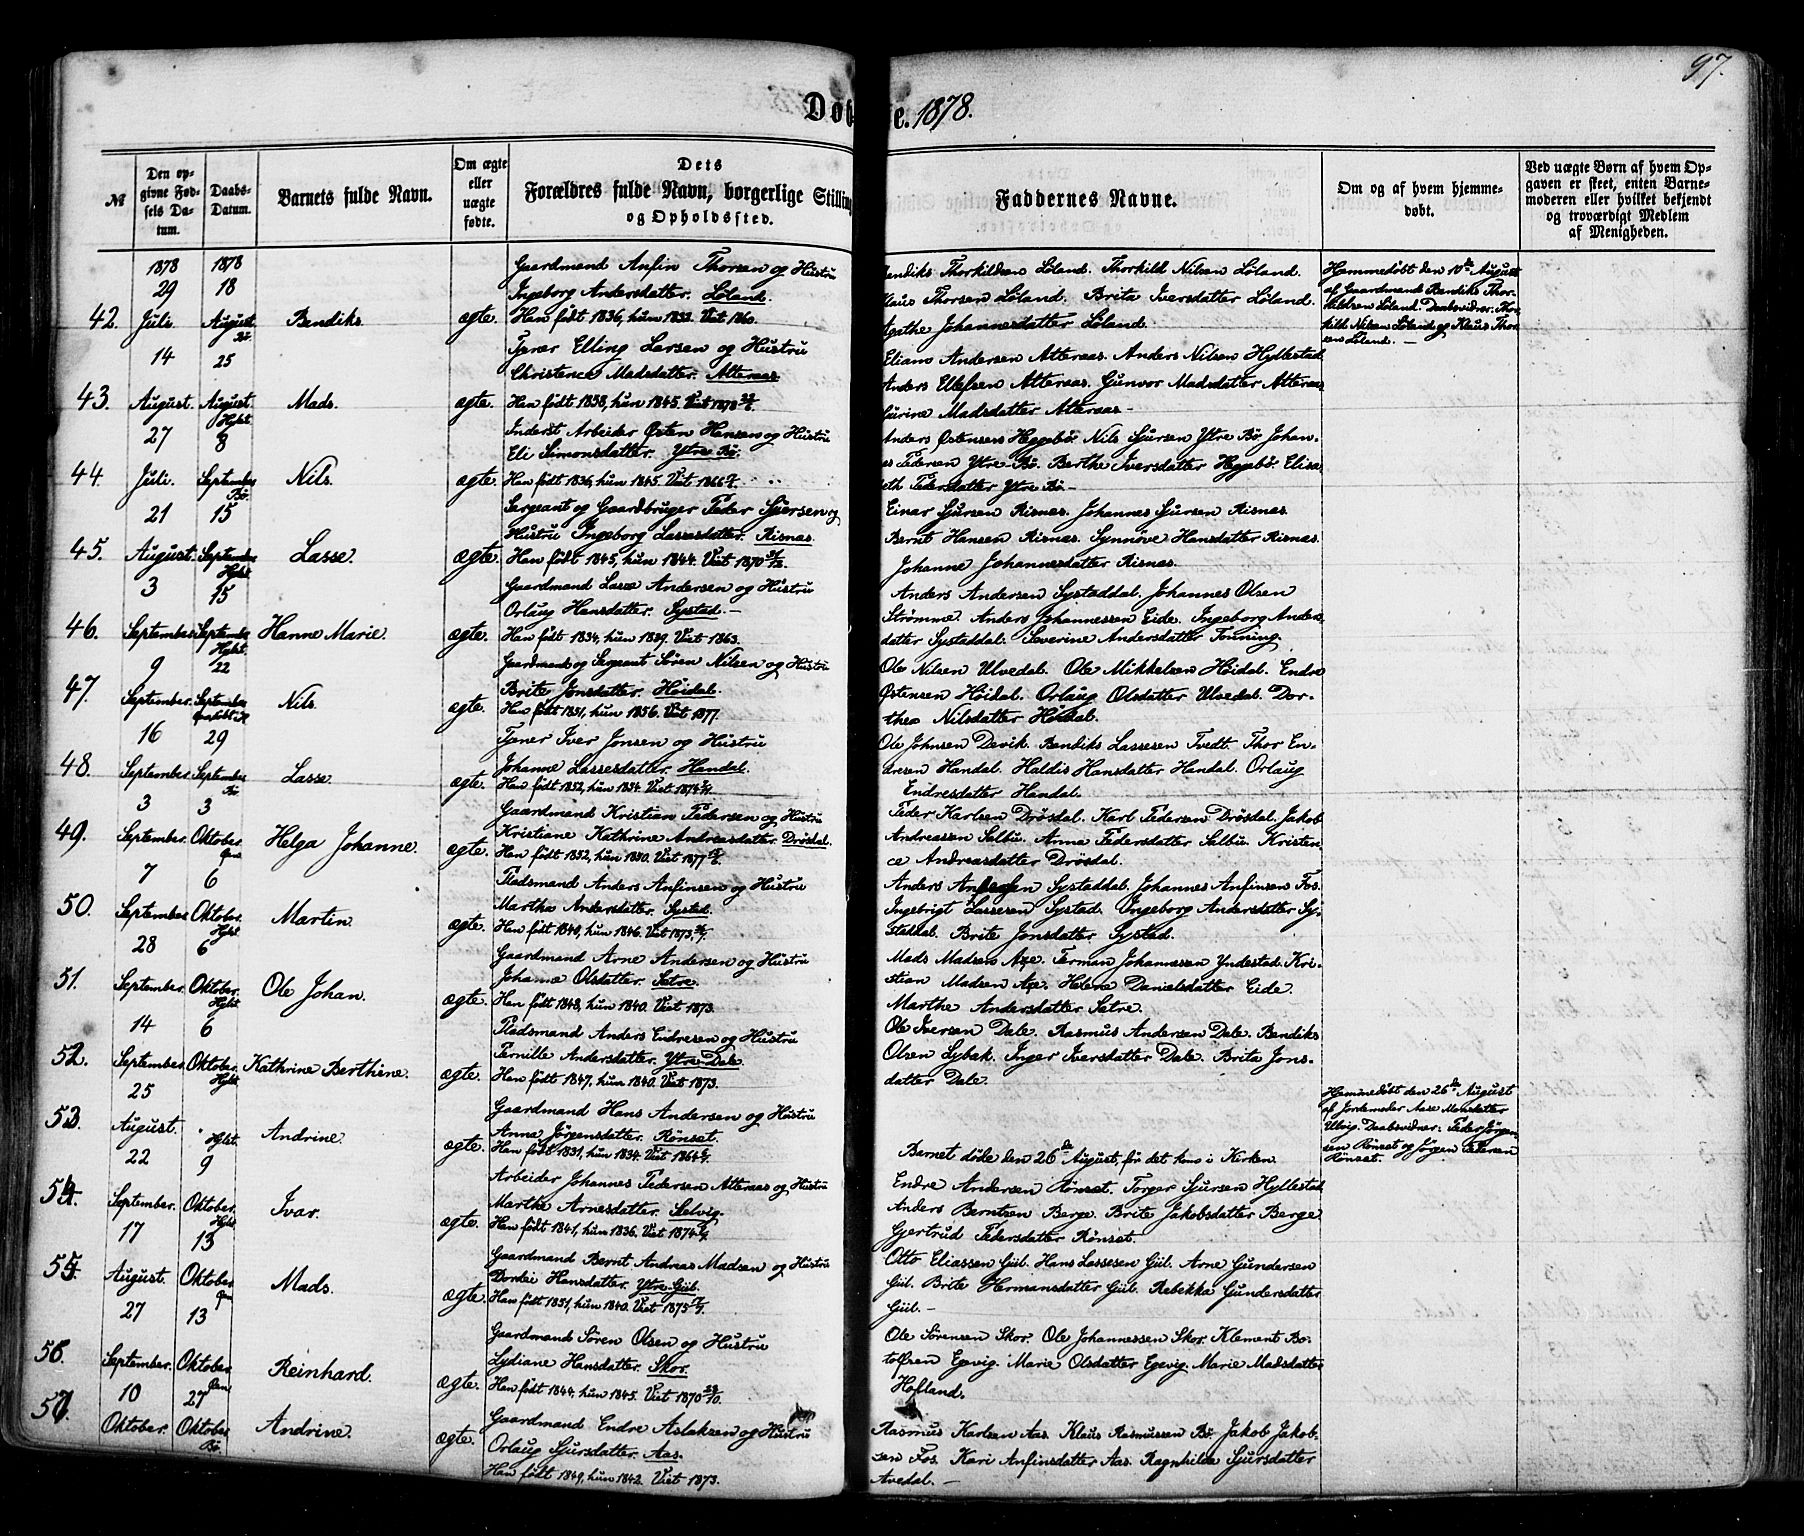 97.
Døb te. 1878.
№
Den opgivne Fødsels Datum.
Daabs-Datum.
Barnets fulde Navn.
Om ægte eller uægte fødte.
Dets Forældres fulde Navn, borgerlige Stilling og Opholdssted.
Faddernes Navne.
Om og af hvem hjemmedøbt.
Ved uægte Børn af hvem Opgaven er skeet, enten Barnemoderen eller hvilket bekjendt og troværdigt Medlem af Menigheden.
1878 1878
42. 29 Juli. 18 August. Bø. Bendiks. ægte.
Gaardmand Anfin Thorsen og Hustru
Ingeborg Andersdatter. Løland.
Han født 1836, hun 1833. Viet 1860.
Bendiks Thorkildsen Løland. Thorkild Nilsen Løland.
Klaus Thorsen Løland. Brita Iversdatter Løland.
Agathe Johannesdatter Løland.
Hjemmedøbt den 10de August
af Gaardmand Bendiks Thor-
kildsen Løland. Daabsvidner: Thor-
kild Nilsen Løland og Klaus Thor-
sen Løland. —
43. 14 August. 25 August. Hylst. Mads. ægte.
Tjener Elling Larsen og Hustru
Christence Madsdatter. Atteraas.
Han født 1838, hun 1845. Viet 1878
Eliam Andersen Atteraas. Anders Nilsen Hyllestad.
Anders Ellefsen Atteraas. Gunvor Madsdatter Atteraas.
Gurine Madsdatter Atteraas —
44. 27 Juli. 8 September. Bø. Nils. ægte.
Inderst Arbeider Østen Hansen og Hustru
Eli Simonsdatter. Ytre Bø.
Han født 1836, hun 1845. Viet 1866
Anders Østensen Heggebø. Nils Sjursen Ytre Bø. Johan-
es Pedersen Ytre-Bø. Berthe Iversdatter Heggebø. Elisa
beth Pedersdatter Ytre Bø. —
45. 21 August. 15 September. Hylst. Lasse. ægte.
Sergeant og Gaardbruger Peder Sjursen og
Hustru Ingeborg Lassesdatter. Risnæs.
Han født 1845, hun 1844. Viet 1870
Einar Sjursen Risnæs. Johannes Sjursen Risnæs.
Bernt Hansen Risnæs. Synnøve Hansdatter Risnæs.
Johanne Johannesdatter Risnæs.
46. 3 September. 15 September. Hylst. Hanne Marie. ægte.
Gaardmand Lasse Andersen og Hustru
Orlaug Hansdatter. Systad. —
Han født 1834, hun 1839. Viet 1863.
Anders Andersen Systaddal. Johannes Olsen
Strømme. Anders Johannessen Eide. Ingeborg Anders-
datter Systaddal. Severine Andersdatter Tenning.
47. 9 September. 22 September. Nils. ægte.
Gaardmand og Sergeant Søren Nilsen og Hustru
Brite Jonsdatter. Høidal.
Han født 1851, hun 1856. Viet 1877.
Ole Nilsen Ulvedal. Ole Mikkelsen Høidal. Endre
Østensen Høidal. Orlaug Olsdatter Ulvedal. Dor-
thea Nilsdatter Høidal.
48. 16 September. 29 September. Bø. Lasse. ægte.
Tjener Iver Jonsen og Hustru
Johanne Lassesdatter. Handal.
Han født 1852, hun 1854. Viet 1874
Ole Johnsen Devik. Bendiks Lassesen Tvedt. Thor En-
dresen Handal. Haldis Hansdatter Handal. Orlaug
Endresdatter Handal.
49. 3 September. 3 Oktober. Helga Johanne. ægte.
Gaardmand Kristian Pedersen og Hustru
Kristiane Kathrine Andreasdatter. Drøsdal.
Han født 1852, hun 1850. Viet 1877
Peder Karlsen Drøsdal. Karl Pedersen Drøsdal. Jakob
Andreassen Salbu. Anna Pedersdatter Salbu. Kristen-
ce Andreasdatter Drøsdal.
50. 7 September. 6 Oktober. Hylst. Martin. ægte.
Pladsmand Anders Anfinsen og Hustru
Martha Andersdatter. Systad.
Han født 1840, hun 1846. Viet 1873
Anders Systaddal. Johannes Anfinsen Fos.
Ingebrigt Lassesen Systad. Ingeborg Andersdatter Sy-
staddal. Brite Jonsdatter Systad.
51. 28 September. 6 Oktober. Hylst. Ole Johan. ægte.
Gaardmand Arne Andersen og Hustru
Johanna Olsdatter. Sætre.
Han født 1848, hun 1840. Viet 1873.
Mads Madsen Axe. Herman Johannesen Yndestad. Kri-
stian Madsen Axe. Helene Danielsdatter Eide.
Marthe Andersdatter Sætre.
52. 14 September. 6 Oktober. Hylst. Kathrine Berthine. ægte.
Pladsmand Anders Endresen og Hustru
Pernille Andersdatter. Ytre-Dale.
Han født 1847, hun 1840. Viet 1873.
Ole Iversen Dale. Rasmus Andersen Dale. Bendiks
Olsen Lybak. Inger Iversdatter Dale. Brita Jons-
datter Dale.
53. 25 August. Andrine. ægte.
Gaardmand Hans Andersen og Hustru
Anne Jørgensdatter. Rønset.
Han født 1831, hun 1834. Viet 1864
Barnet døde den 26de August, før det kom i Kirken.
Hjemmedøbt den 26de August
af Jordemoder Aase Monsdatter
Ulvig. Daabsvidner: Peder Jørgen-
sen Rønset og Jørgen Pedersen
Rønset.
54. 22 September. 9 Oktober. Hylst. Ivar. ægte.
Arbeider Johannes Pedersen Atteraas og Hustru
Marthe Arnesdatter. Sælvig.
Han født 1841, hun 1836. Viet 1874
Endre Andersen Rønset. Torger Sjursen Hyllestad.
Anders Berntsen Berge. Brite Jakobsdatter Berge.
Gjertrud Pedersdatter Rønset.
55. 17 August. 13 Oktober. Mads. ægte.
Gaardmand Bernt Andreas Madsen og Hustru
Dordei Hansdatter. Ytre-Gül.
Han født 1851, hun 1840. Viet 1875
Otto Eliassen Gül. Hans Lassesen Gül. Arne Gundersen
Gül. Brite Hermansdatter Gül. Rebekka Gundersdatter
Gül. —
56. 27 September. 13 Oktober. Reinhard. ægte.
Gaardmand Søren Olsen og Hustru
Lydiane Hansdatter. Skor.
Han født 1844, hun 1845. Viet 1870 23/10.
Ole Sørensen Skor. Ole Johannessen Skor. Klement Bo-
tolfsen Egevig. Marie Olsdatter Egevig. Marie Madsdatter
Hofland.
57. 10 Oktober. 27 Oktober. Bø. Andrine. ægte.
Gaardmand Endre Aslaksen og Hustru
Orlaug Sjursdatter. Aas.
Han født 1849, hun 1842. Viet 1873.
Rasmus Karlsen Aas. Klaus Rasmussen Bø. Jakob Jakob-
sen Fos. Kari Anfinsdatter Aas. Ragnhilda Sjursdatter
Avedal. —